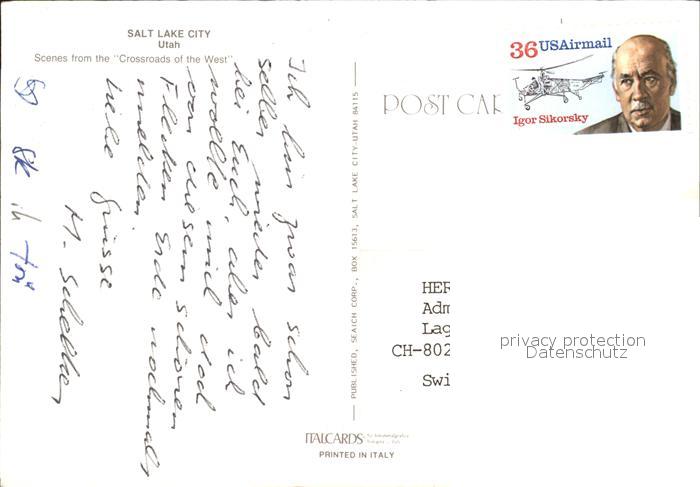 SALT LAKE CITY
Utah
Scenes from the "Crossroads of the West"
Ich bin zwar schon
selber wieder bald
bei Euch, aber ich
wollte mich doch
von diesem schönen
Flecken Erde nochmals
melden.
Viele Grüsse
M.
PUBLISHED, SEAICH CORP., BOX 15613, SALT LAKE CITY-UTAH 84115
POST CAR
36 USAirmail
Igor Sikorsky
HER
Adm
Lag
CH-802
Swi
privacy protection
Datenschutz
ITALCARDS
PRINTED IN ITALY